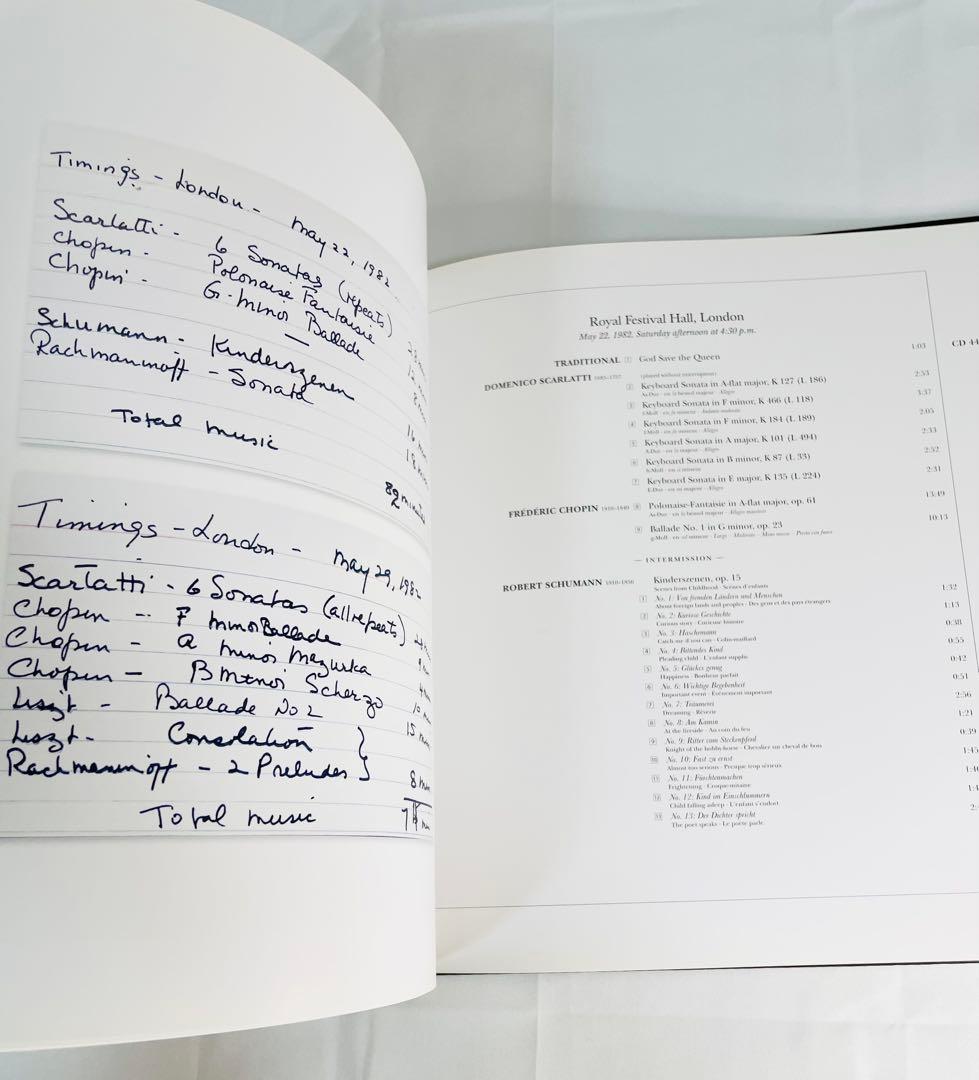 Timings - London - May 22, 1982
Scarlatti - 6 Sonatas (repeats)
Chopin - Polonaise Fantaisie
Chopin - G minor Ballade
Schumann - Kinderszenen
Rachmaninoff - Sonata
Total music
Timings - London - May 29, 1982
Scarlatti - 6 Sonatas (all repeats)
Chopin - F minor Ballade
Chopin - A minor Mazurka
Chopin - B minor Scherzo
Liszt - Ballade No 2
15
Liszt - Consolation
Rachmaninoff - 2 Preludes
8
Total music
Royal Festival Hall, London
May 22, 1982, Saturday afternoon at 4:30 p.m.
TRADITIONAL 1 God Save the Queen 1:03 CD 44
DOMENICO SCARLATTI 1685-1757 (played without interruption)
2 Keyboard Sonata in A-flat major, K 127 (L 186) 2:53
3 Keyboard Sonata in F minor, K 466 (L 118) 3:37
4 Keyboard Sonata in F minor, K 184 (L 189) 2:05
5 Keyboard Sonata in A major, K 101 (L 494) 2:33
6 Keyboard Sonata in B minor, K 87 (L 33) 2:52
7 Keyboard Sonata in E major, K 135 (L 224) 2:31
FRÉDÉRIC CHOPIN 1810-1849 8 Polonaise-Fantaisie in A-flat major, op. 61 13:49
9 Ballade No. 1 in G minor, op. 23 10:13
— INTERMISSION —
ROBERT SCHUMANN 1810-1856 Kinderszenen, op. 15
Scenes from Childhood · Scènes d'enfants
1 No. 1: Von fremden Ländern und Menschen 1:32
About foreign lands and peoples · Des gens et des pays étrangers
2 No. 2: Kuriose Geschichte 1:13
Curious story · Curieuse histoire
3 No. 3: Haschemann 0:38
Catch me if you can · Colin-maillard
4 No. 4: Bittendes Kind 0:55
Pleading child · L'enfant supplie
5 No. 5: Glückes genug 0:42
Happiness · Bonheur parfait
6 No. 6: Wichtige Begebenheit 0:51
Important event · Événement important
7 No. 7: Träumerei 2:56
Dreaming · Rêverie
8 No. 8: Am Kamin 1:21
At the fireside · Au coin du feu
9 No. 9: Ritter vom Steckenpferd 0:39
Knight of the hobby-horse · Chevalier sur cheval de bois
10 No. 10: Fast zu ernst 1:45
Almost too serious · Presque trop sérieux
11 No. 11: Fürchtenmachen
Frightening · Croque-mitaine
12 No. 12: Kind im Einschlummern
Child falling asleep · L'enfant s'endort
13 No. 13: Der Dichter spricht
The poet speaks · Le poète parle